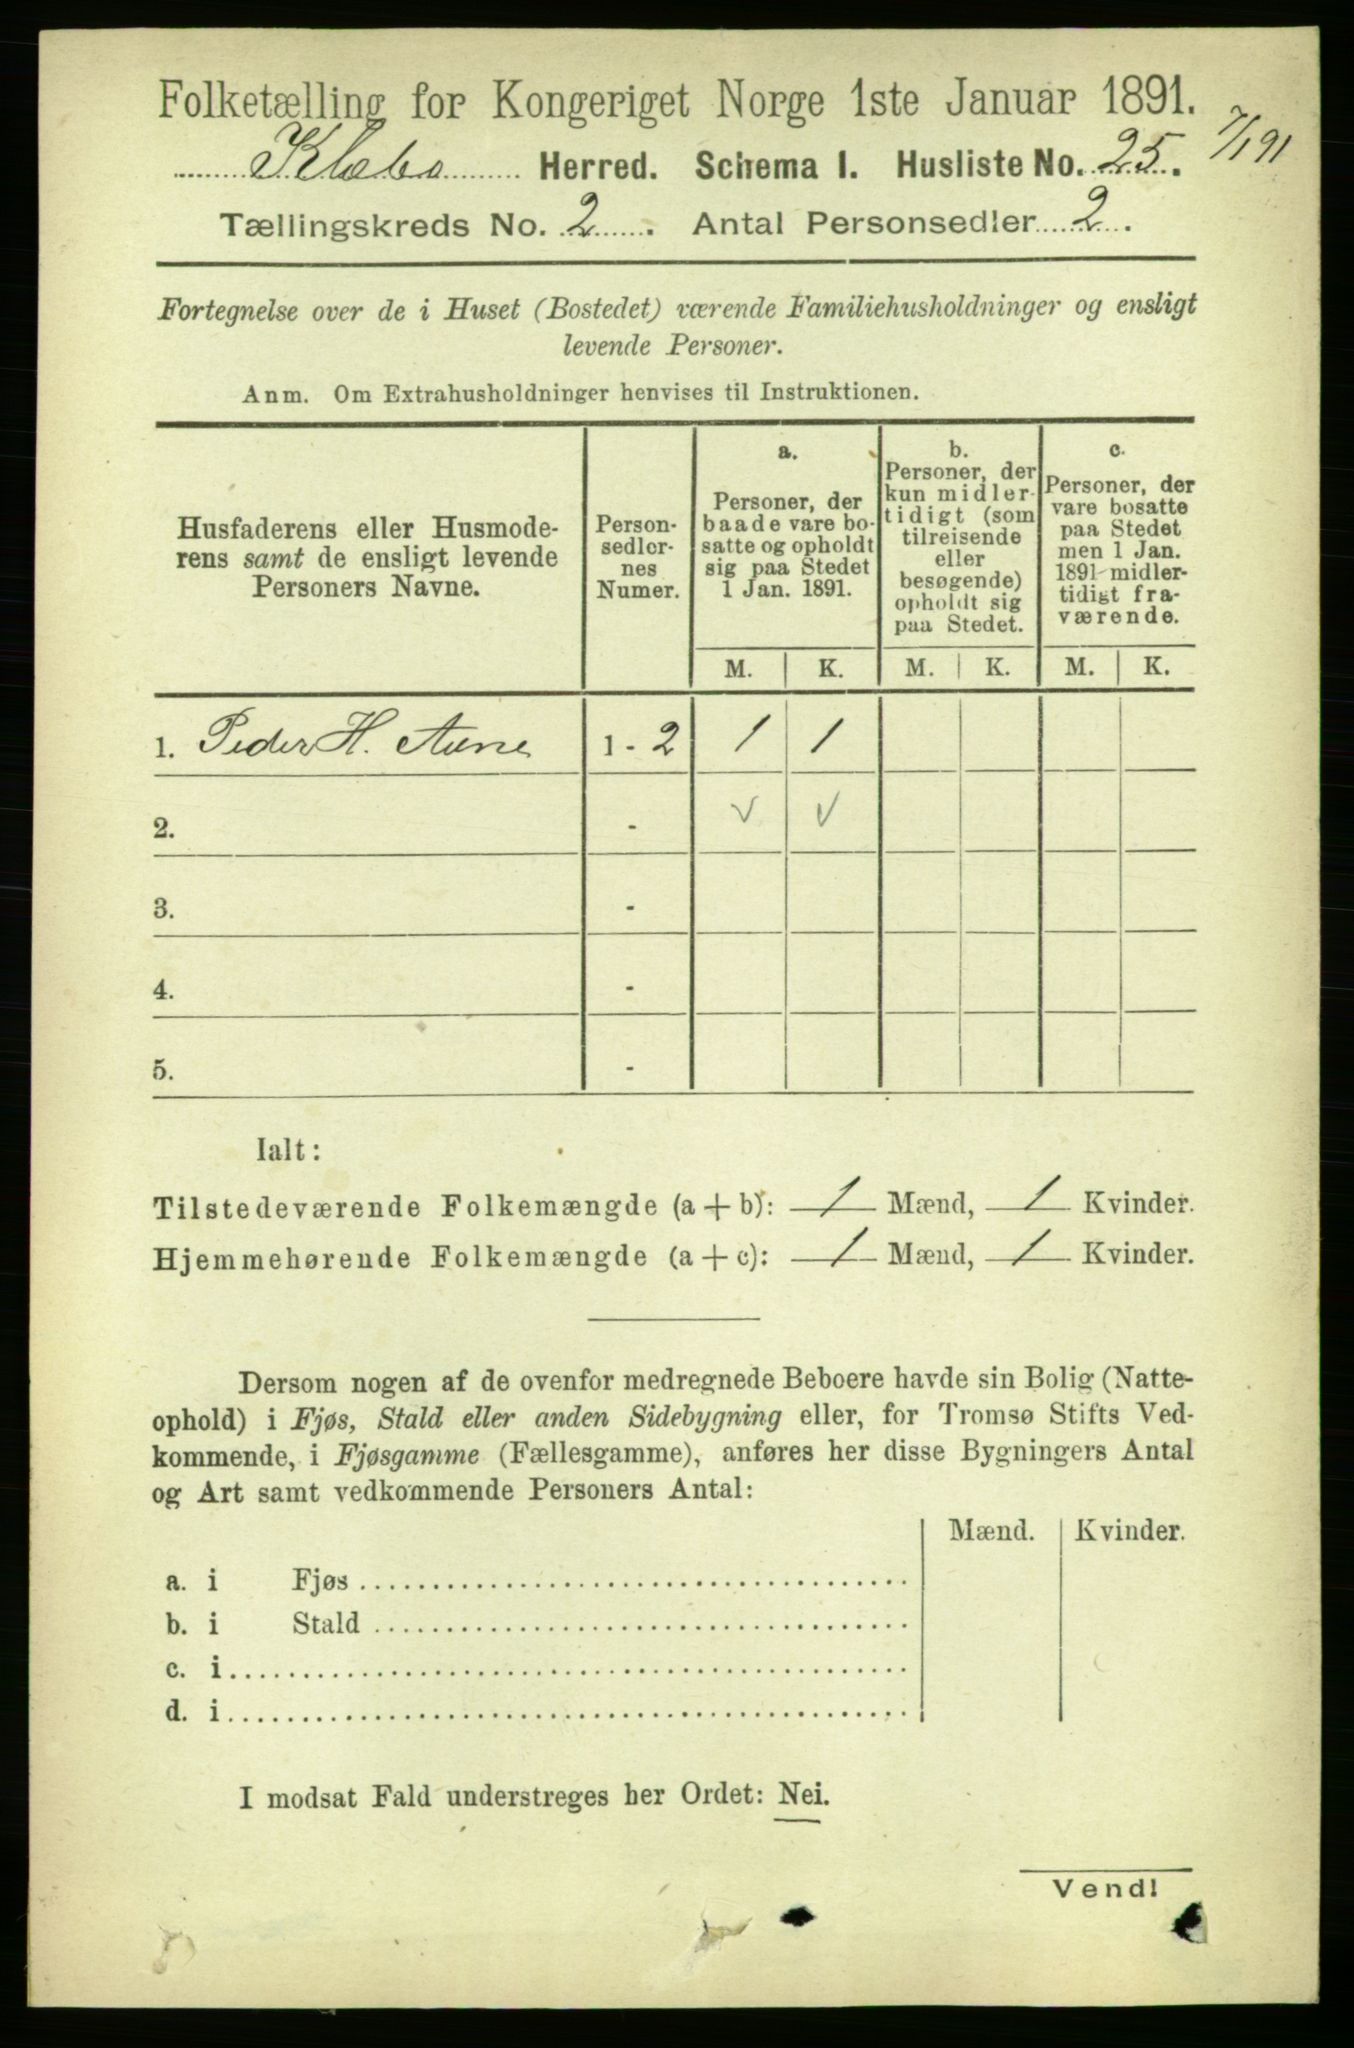 Folketælling for Kongeriget Norge 1ste Januar 1891.
7/1 91
Klæbo Herred. Schema I. Husliste No. 25.
Tællingskreds No. 2. Antal Personsedler 2.
Fortegnelse over de i Huset (Bostedet) værende Familiehusholdninger og ensligt
levende Personer.
Anm. Om Extrahusholdninger henvises til Instruktionen.
Husfaderens eller Husmode-
rens samt de ensligt levende
Personers Navne.
Person-
sedler-
nes
Numer.
a.
Personer, der
baade vare bo-
satte og opholdt
sig paa Stedet
1 Jan. 1891.
b.
Personer, der
kun midler-
tidigt (som
tilreisende
eller
besøgende)
opholdt sig
paa Stedet.
c.
Personer, der
vare bosatte
paa Stedet
men 1 Jan.
1891 midler-
tidigt fra-
værende.
M. K. M. K. M. K.
1. Peder H. Aune 1 - 2 1 1
2. - √ √
3. -
4. -
5. -
Ialt:
Tilstedeværende Folkemængde (a + b): 1 Mænd, 1 Kvinder.
Hjemmehørende Folkemængde (a + c): 1 Mænd, 1 Kvinder.
Dersom nogen af de ovenfor medregnede Beboere havde sin Bolig (Natte-
ophold) i Fjøs, Stald eller anden Sidebygning eller, for Tromsø Stifts Ved-
kommende, i Fjøsgamme (Fællesgamme), anføres her disse Bygningers Antal
og Art samt vedkommende Personers Antal:
Mænd. Kvinder.
a. i Fjøs
b. i Stald
c. i
d. i
I modsat Fald understreges her Ordet: Nei.
Vend!